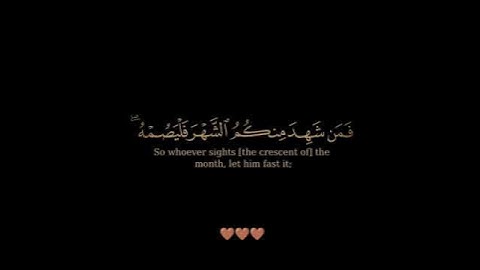 فَمَن شَهِدَ مِنكُمُ ٱلشَّهْرَ فَلْيَصُمْهُ ۖ
So whoever sights [the crescent of] the
month, let him fast it;